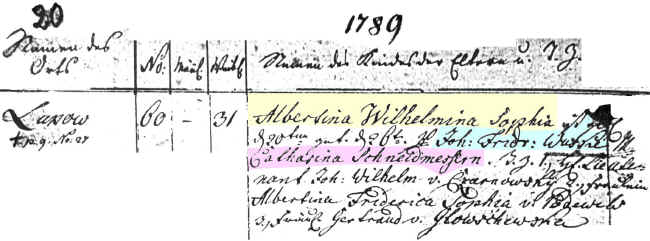 20
1789
Namen des
Orts
No:
Männl
Weibl
Namen des Kindes der Eltern u. T. g.
Lupow
60
-
31
Albertina Wilhelmina Sophia ist geb
d 20ten get. d 26t. Joh: Fridr:
Catharina Schneidmessern. T. g. 1,
nant Joh: Wilhelm v. Czarnowsky 2, Fräulein
Albertina Friderica Sophia v.
3, Gertraud v. Glowschewska